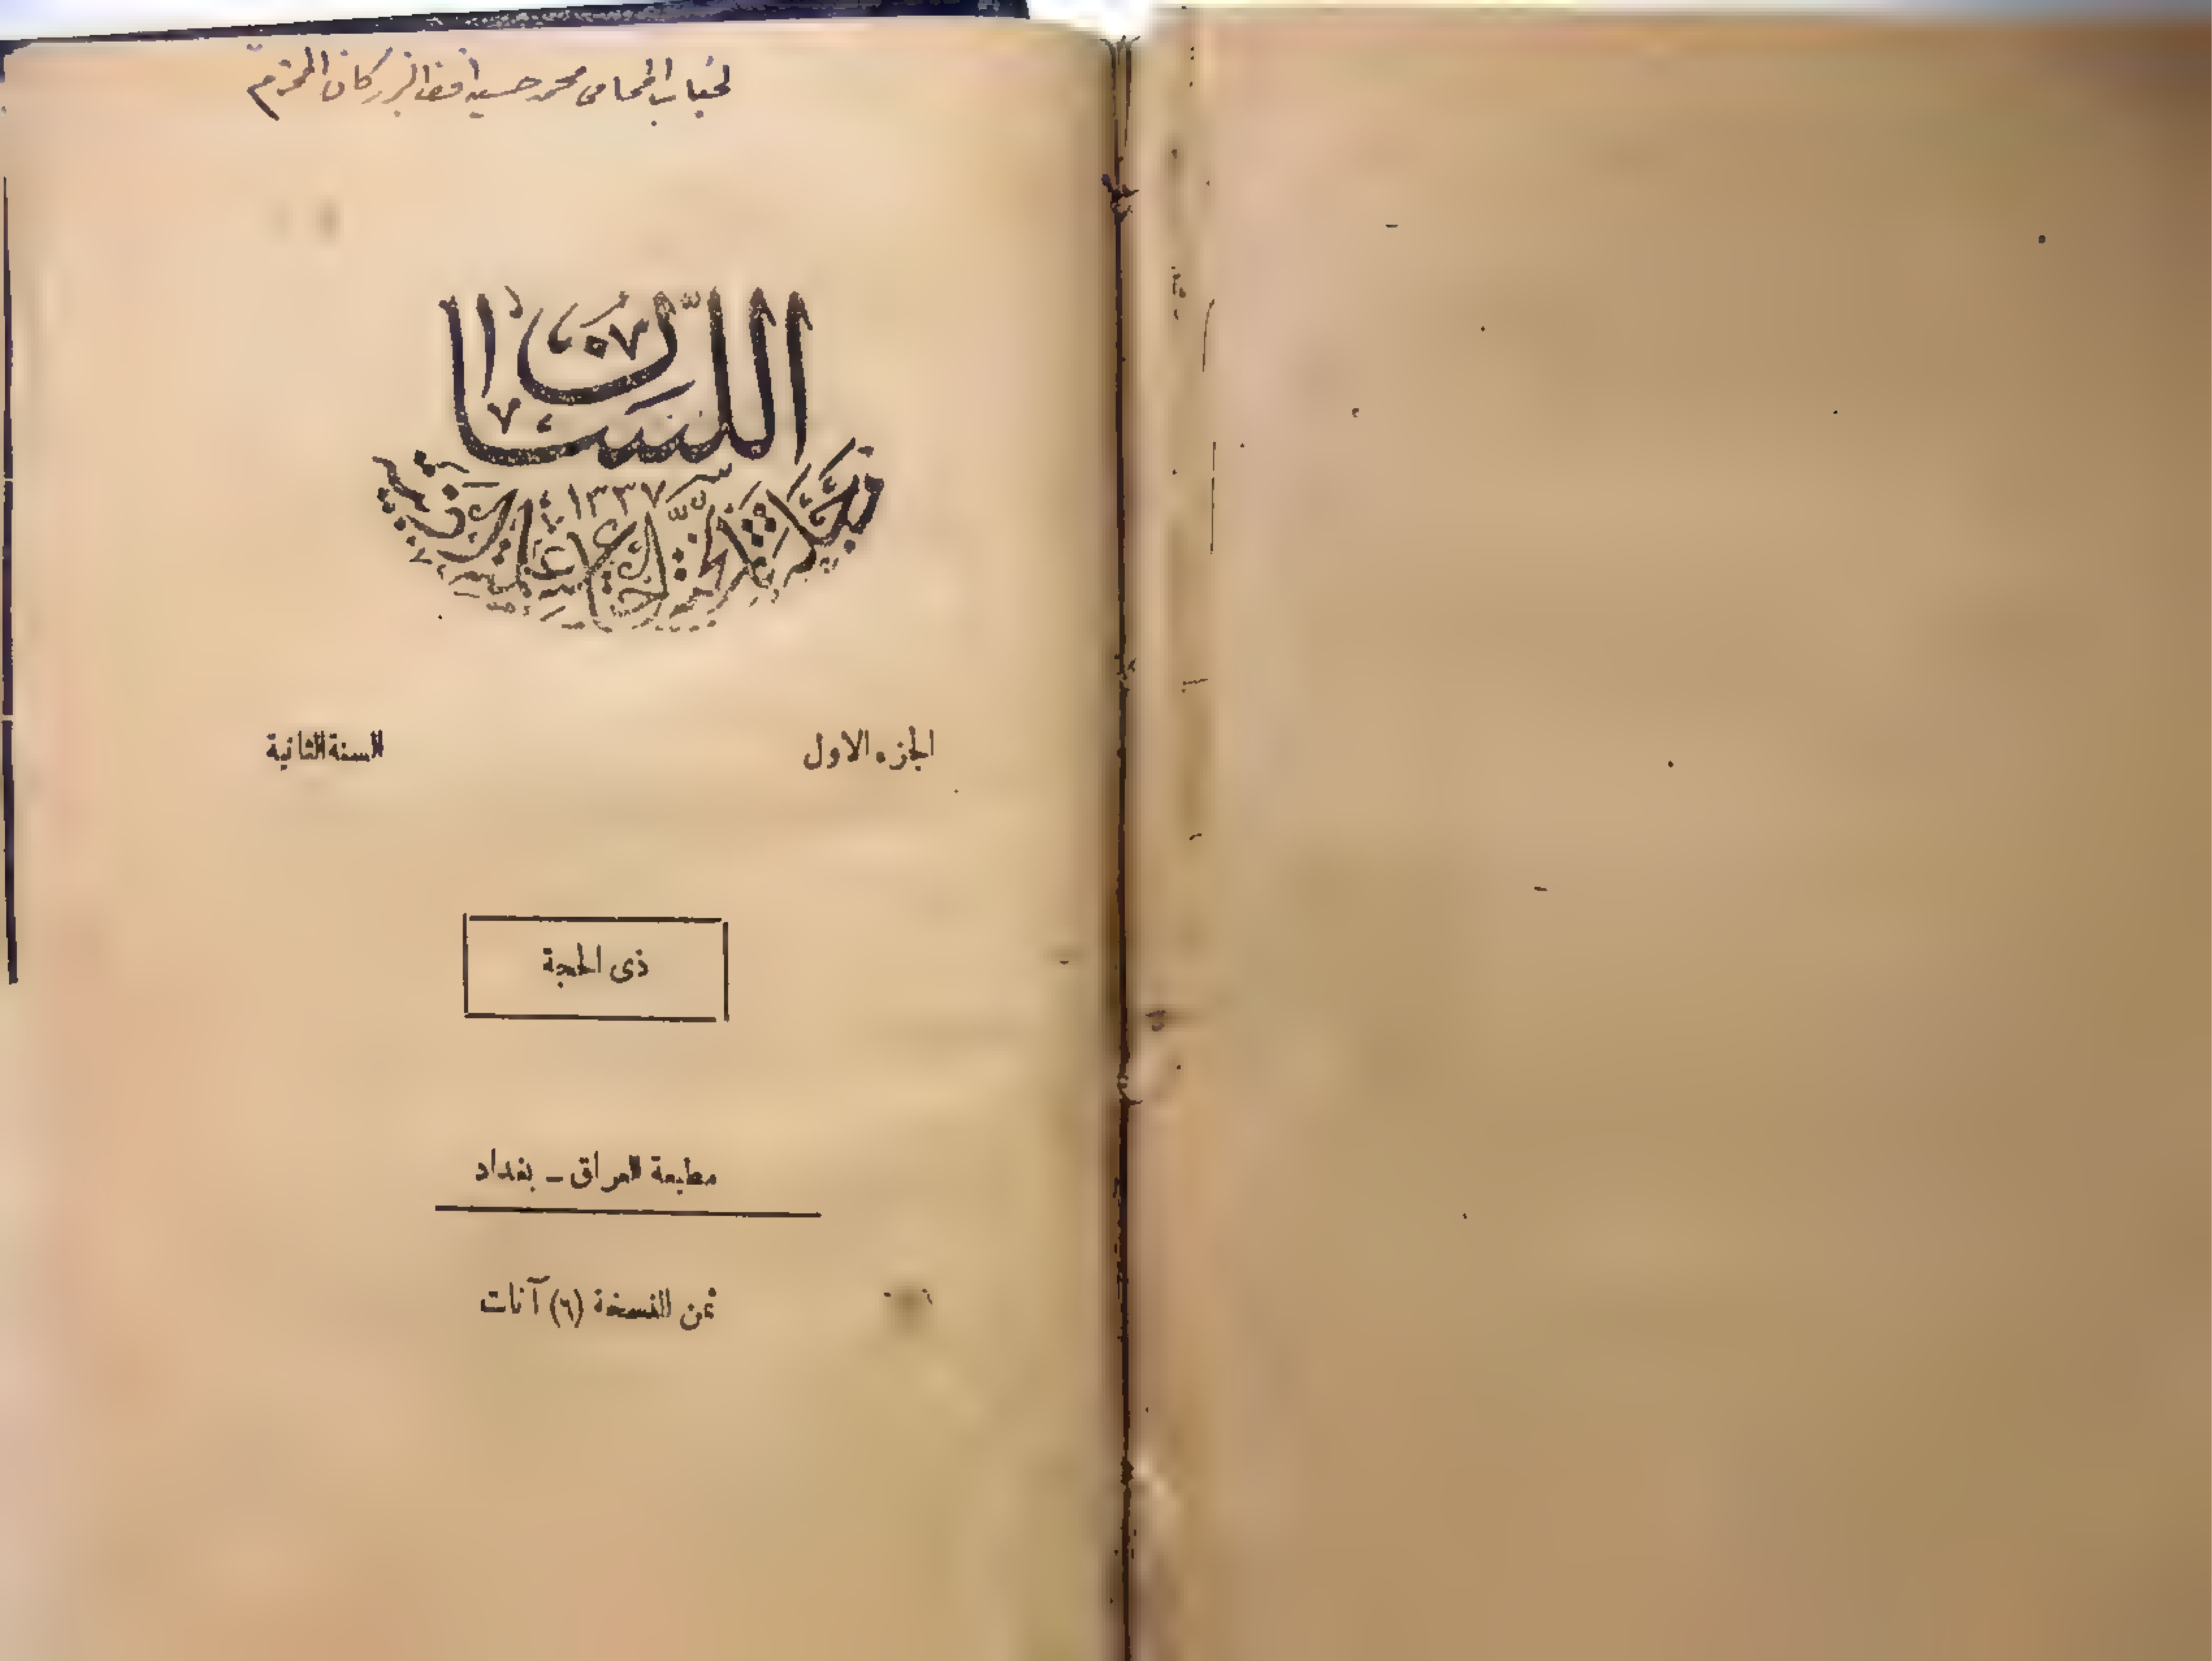 لجناب المحامي محمد حسين افندي المحترم
اللسان
سنة ١٣٣٧
مجلة
الجزء الاول السنة الثانية
ذى الحجة
مطبعة العراق – بغداد
ثمن النسخة (٦) آنات